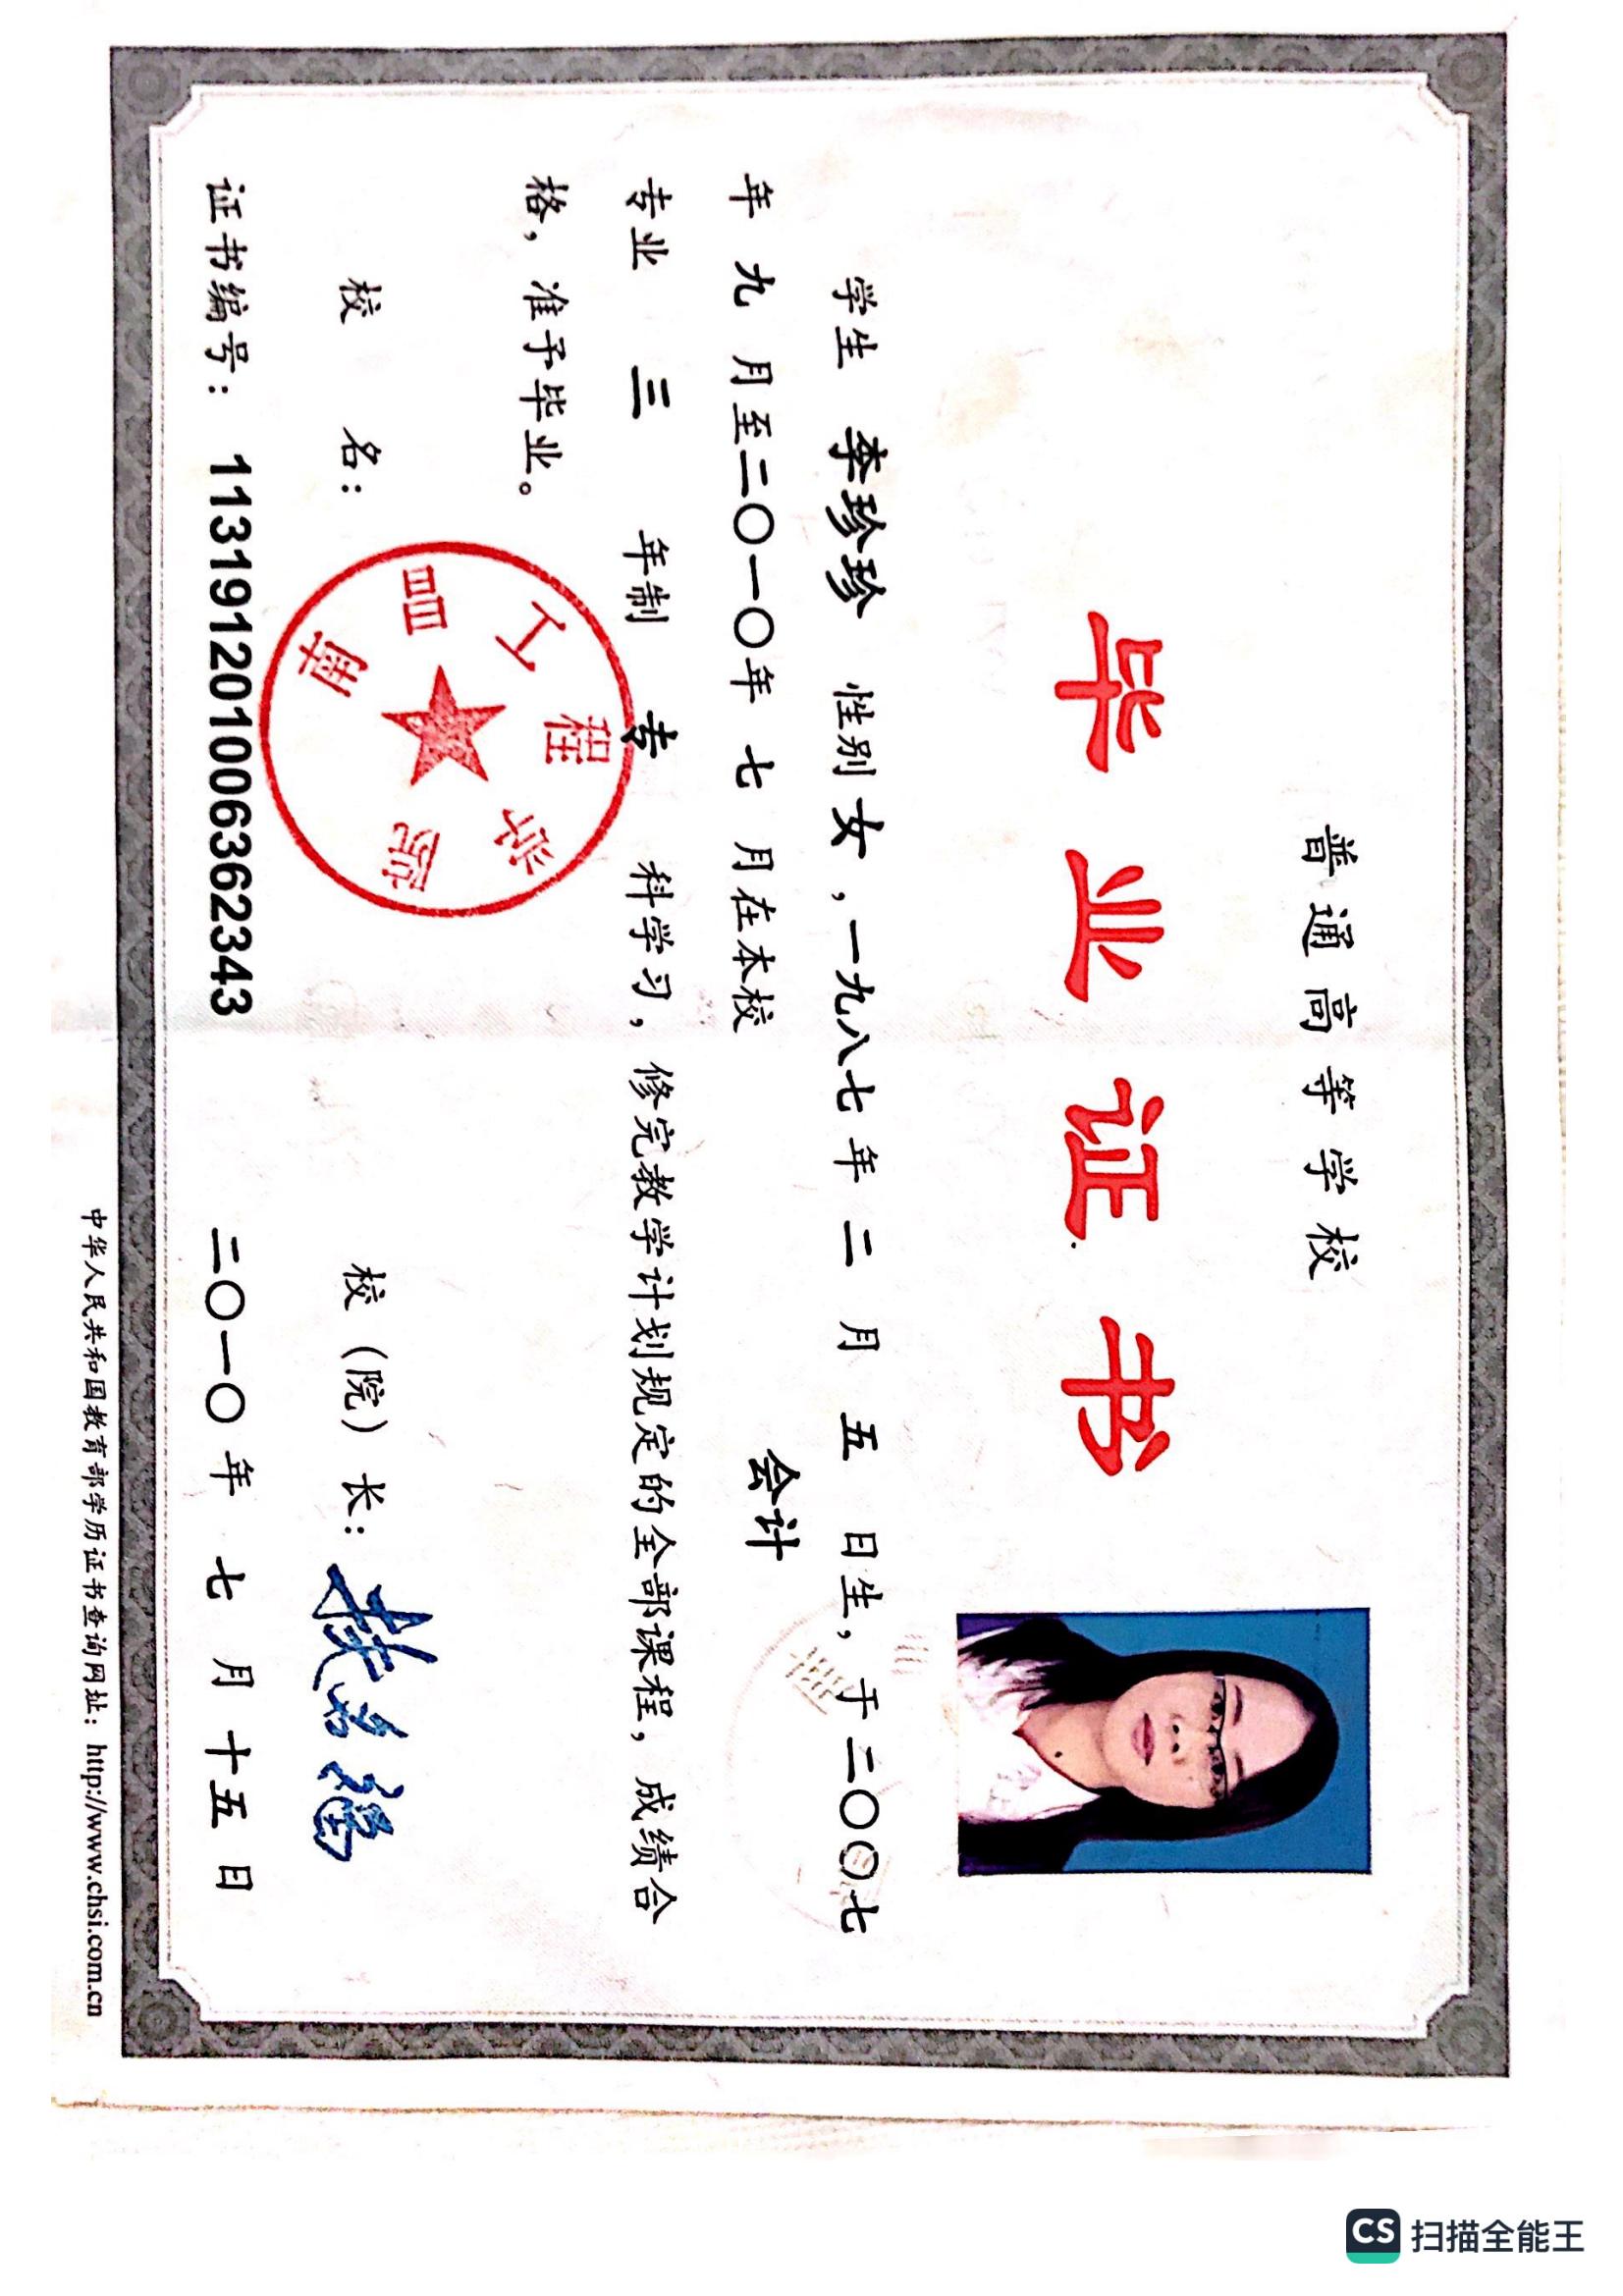 普通高等学校
毕业证书
学生 李珍珍 性别 女，一九八七年 二 月 五 日生，于二〇〇七
年 九 月至二〇一〇年 七 月在本校 会计
专业 三 年制 专 科学习，修完教学计划规定的全部课程，成绩合
格，准予毕业。
校 名： 校（院）长：
工程学院
证书编号： 113191201006362343 二〇一〇年 七 月 十五 日
中华人民共和国教育部学历证书查询网址：http://www.chsi.com.cn
CS 扫描全能王